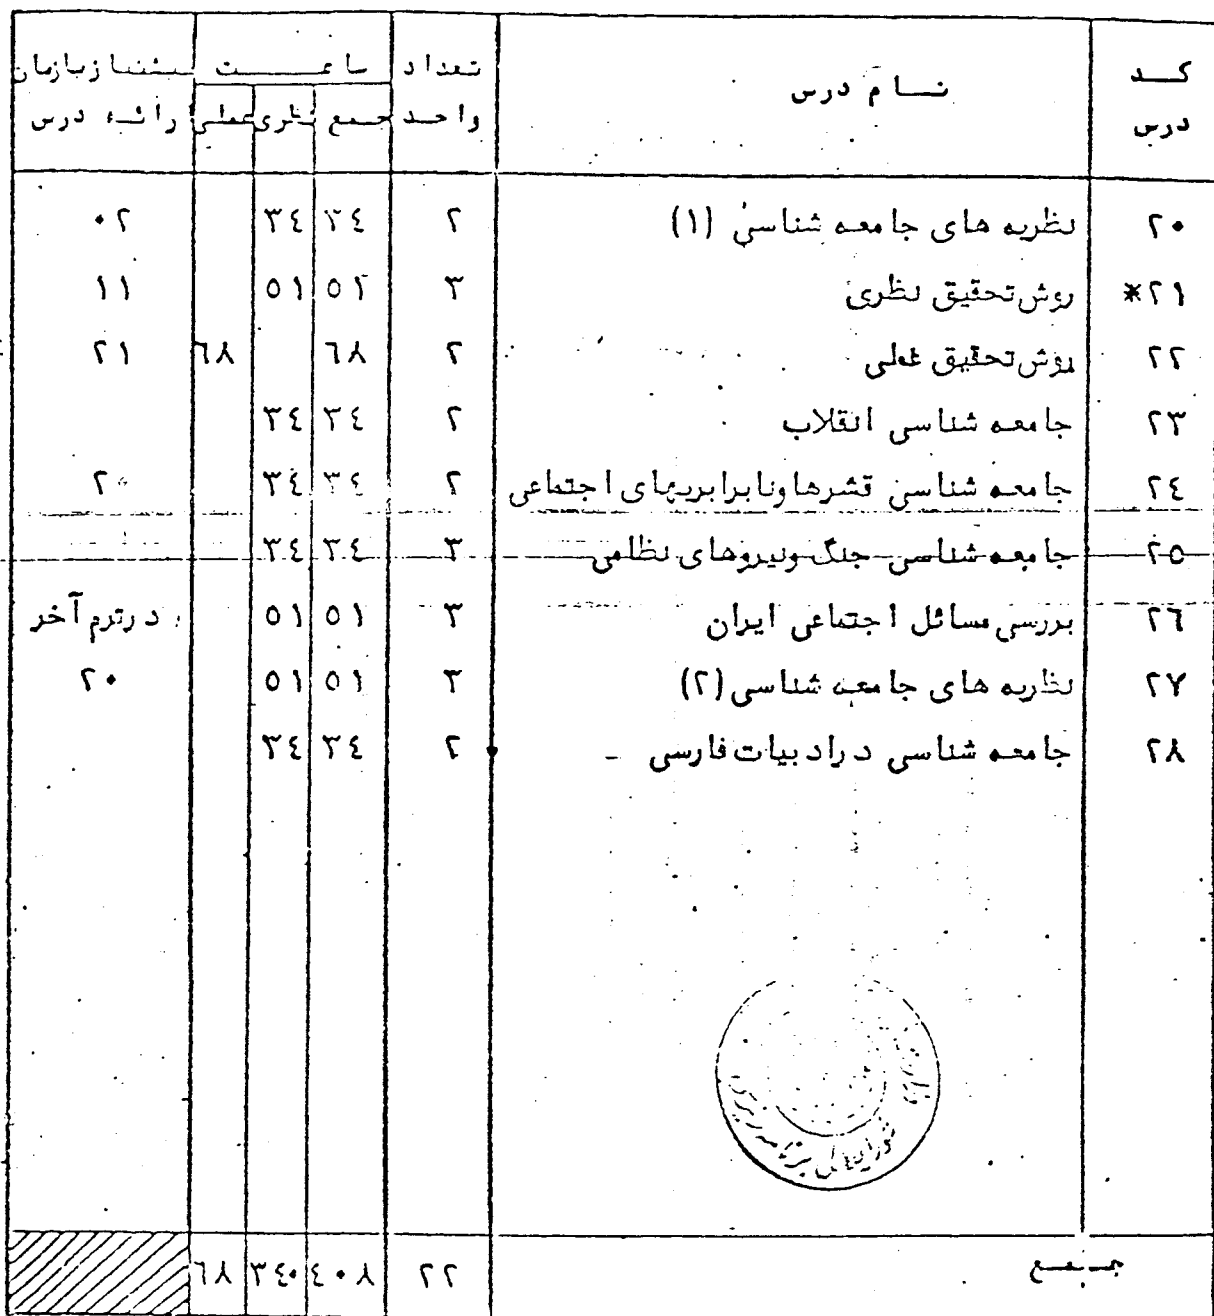 کد درس | نام درس | تعداد واحد | ساعت: جمع | نظری | عملی | پیشنیاز یا زمان ارائه درس
۲۰ | نظریه های جامعه شناسی (۱) | ۲ | ۳٤ | ۳٤ | | ۰۲
*۲۱ | روش تحقیق نظری | ۳ | ۵۱ | ۵۱ | | ۱۱
۲۲ | روش تحقیق عملی | ۲ | ٦۸ | | ٦۸ | ۲۱
۲۳ | جامعه شناسی انقلاب | ۲ | ۳٤ | ۳٤
۲٤ | جامعه شناسی قشرها و نابرابریهای اجتماعی | ۲ | ۳٤ | ۳٤ | | ۲۰
۲۵ | جامعه شناسی جنگ و نیروهای نظامی | ۳ | ۳٤ | ۳٤
۲٦ | بررسی مسائل اجتماعی ایران | ۳ | ۵۱ | ۵۱ | | در ترم آخر
۲۷ | نظریه های جامعه شناسی (۲) | ۳ | ۵۱ | ۵۱ | | ۲۰
۲۸ | جامعه شناسی در ادبیات فارسی | ۲ | ۳٤ | ۳٤
جمع | ۲۲ | ٤۰۸ | ۳٤۰ | ٦۸